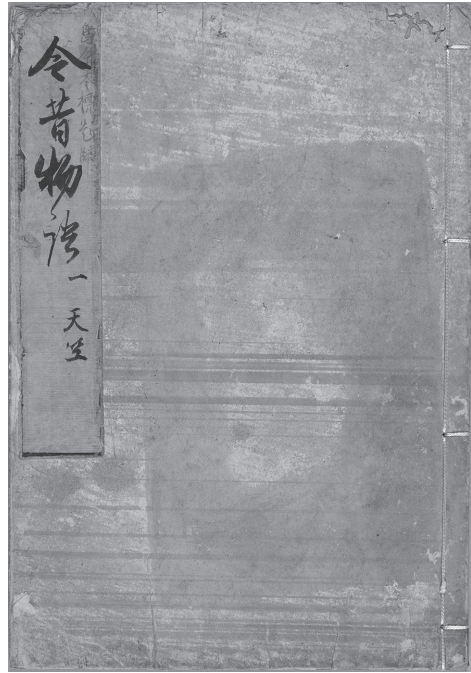 今昔物語一
天竺